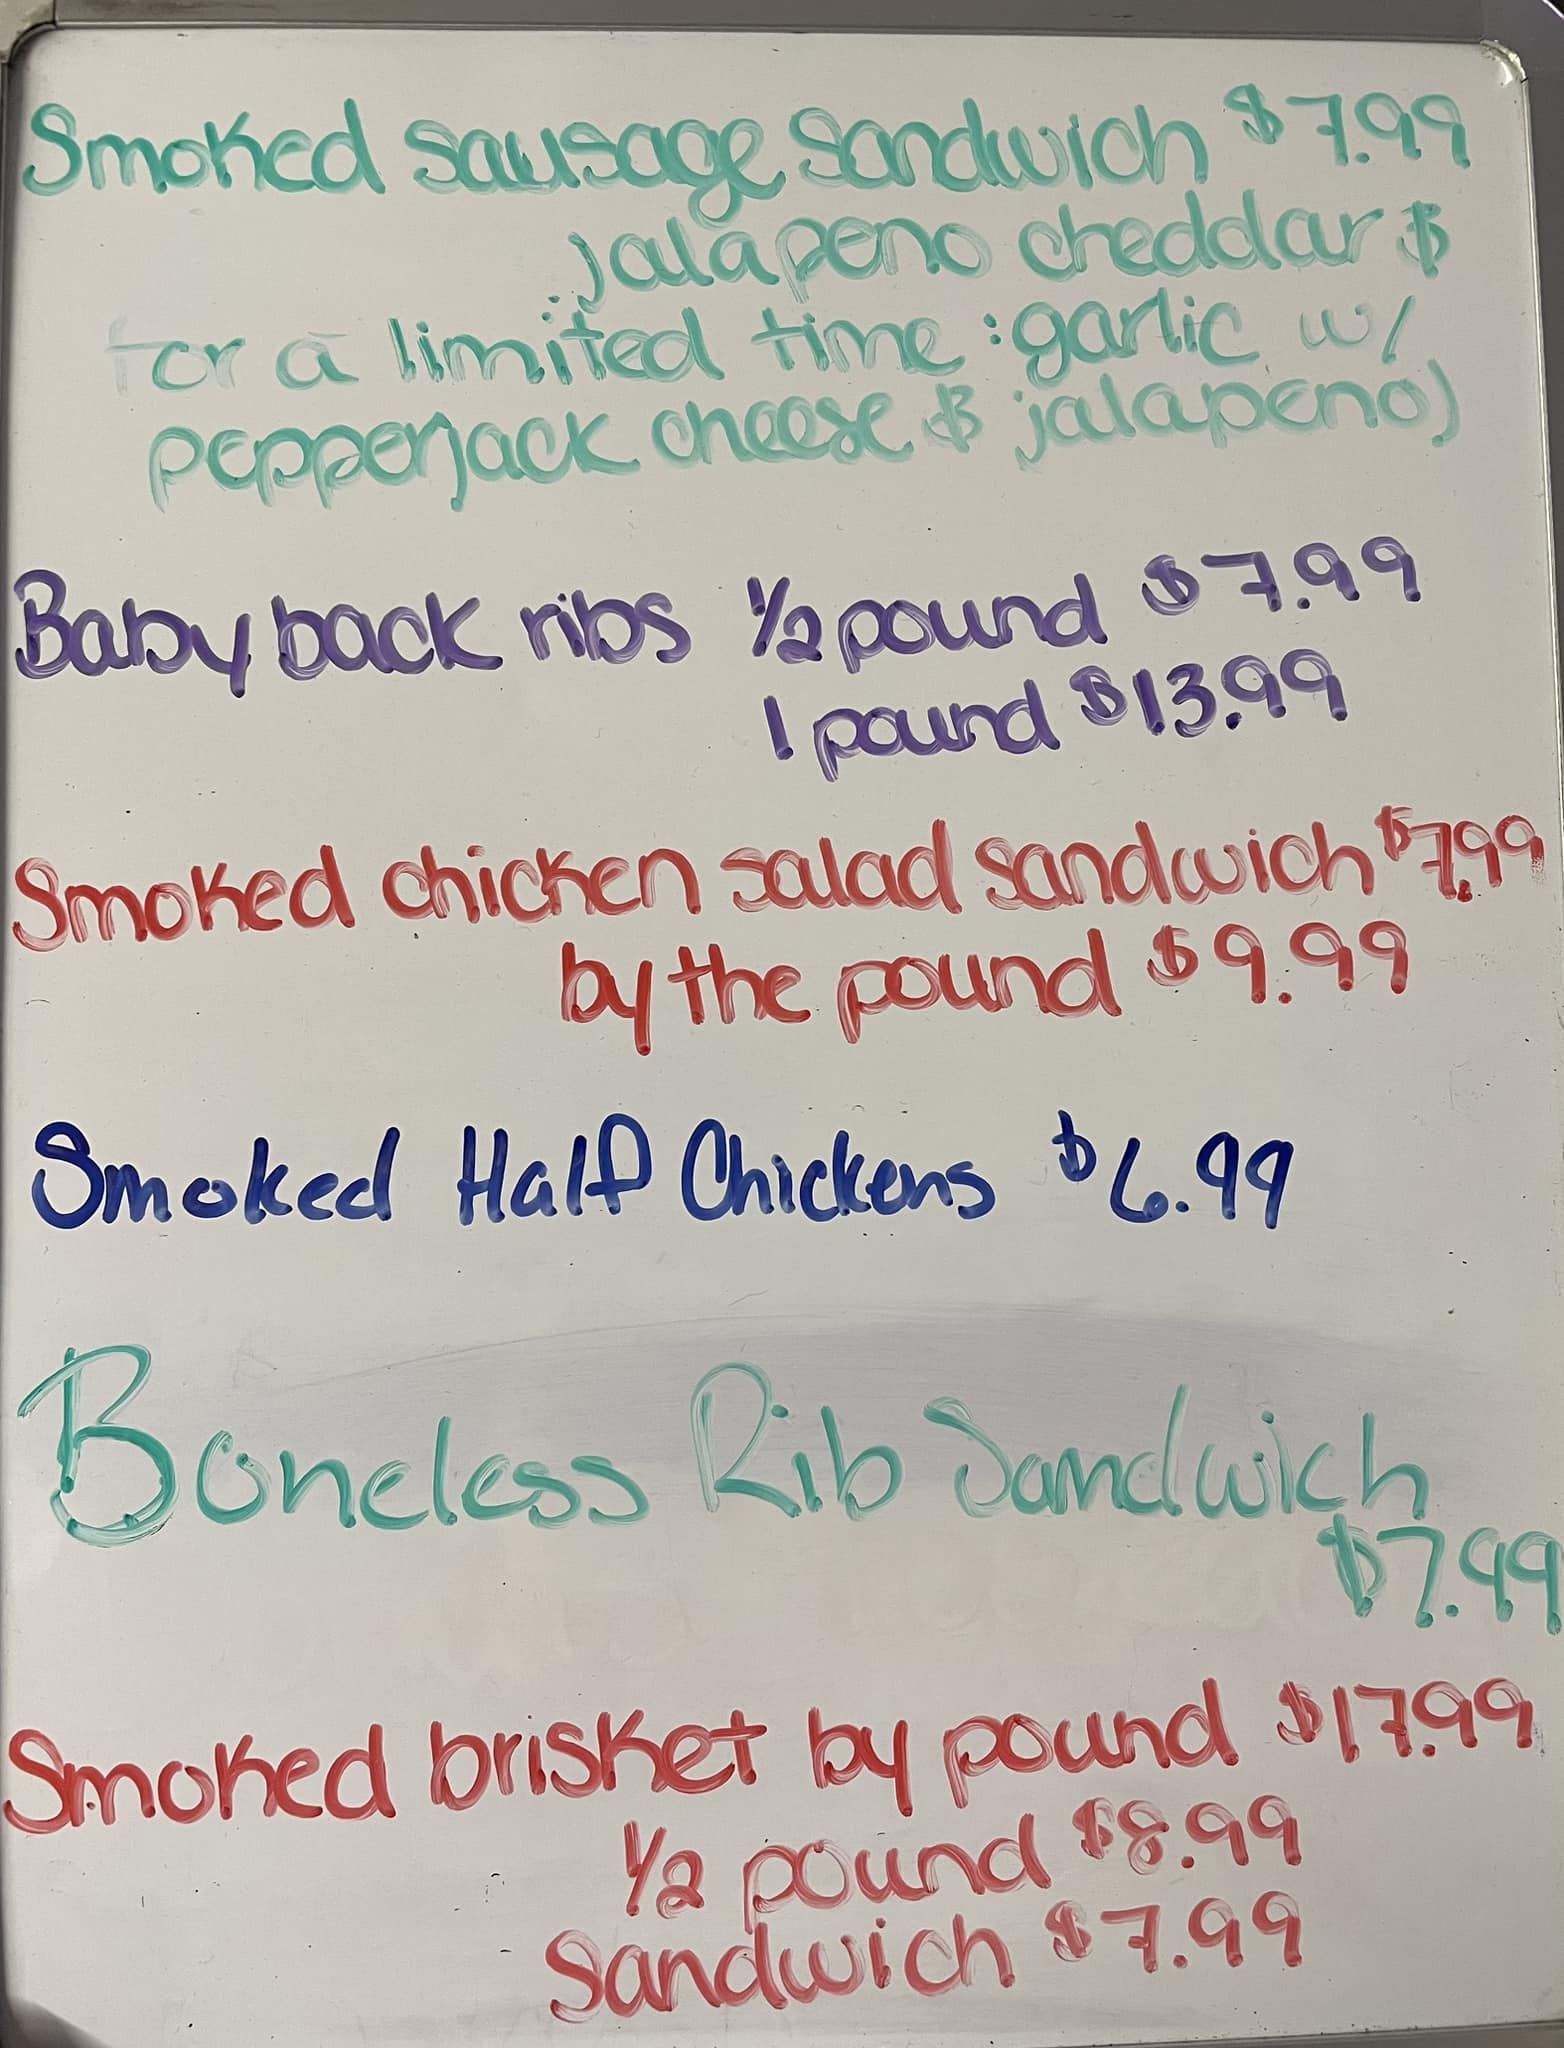 Smoked sausage sandwich $7.99
jalapeno cheddar &
for a limited time : garlic w/
pepperjack cheese & jalapeno)
Baby back ribs 1/2 pound $7.99
1 pound $13.99
Smoked chicken salad sandwich $7.99
by the pound $9.99
Smoked Half Chickens $6.99
Boneless Rib Sandwich
$7.99
Smoked brisket by pound $17.99
1/2 pound $8.99
Sandwich $7.99